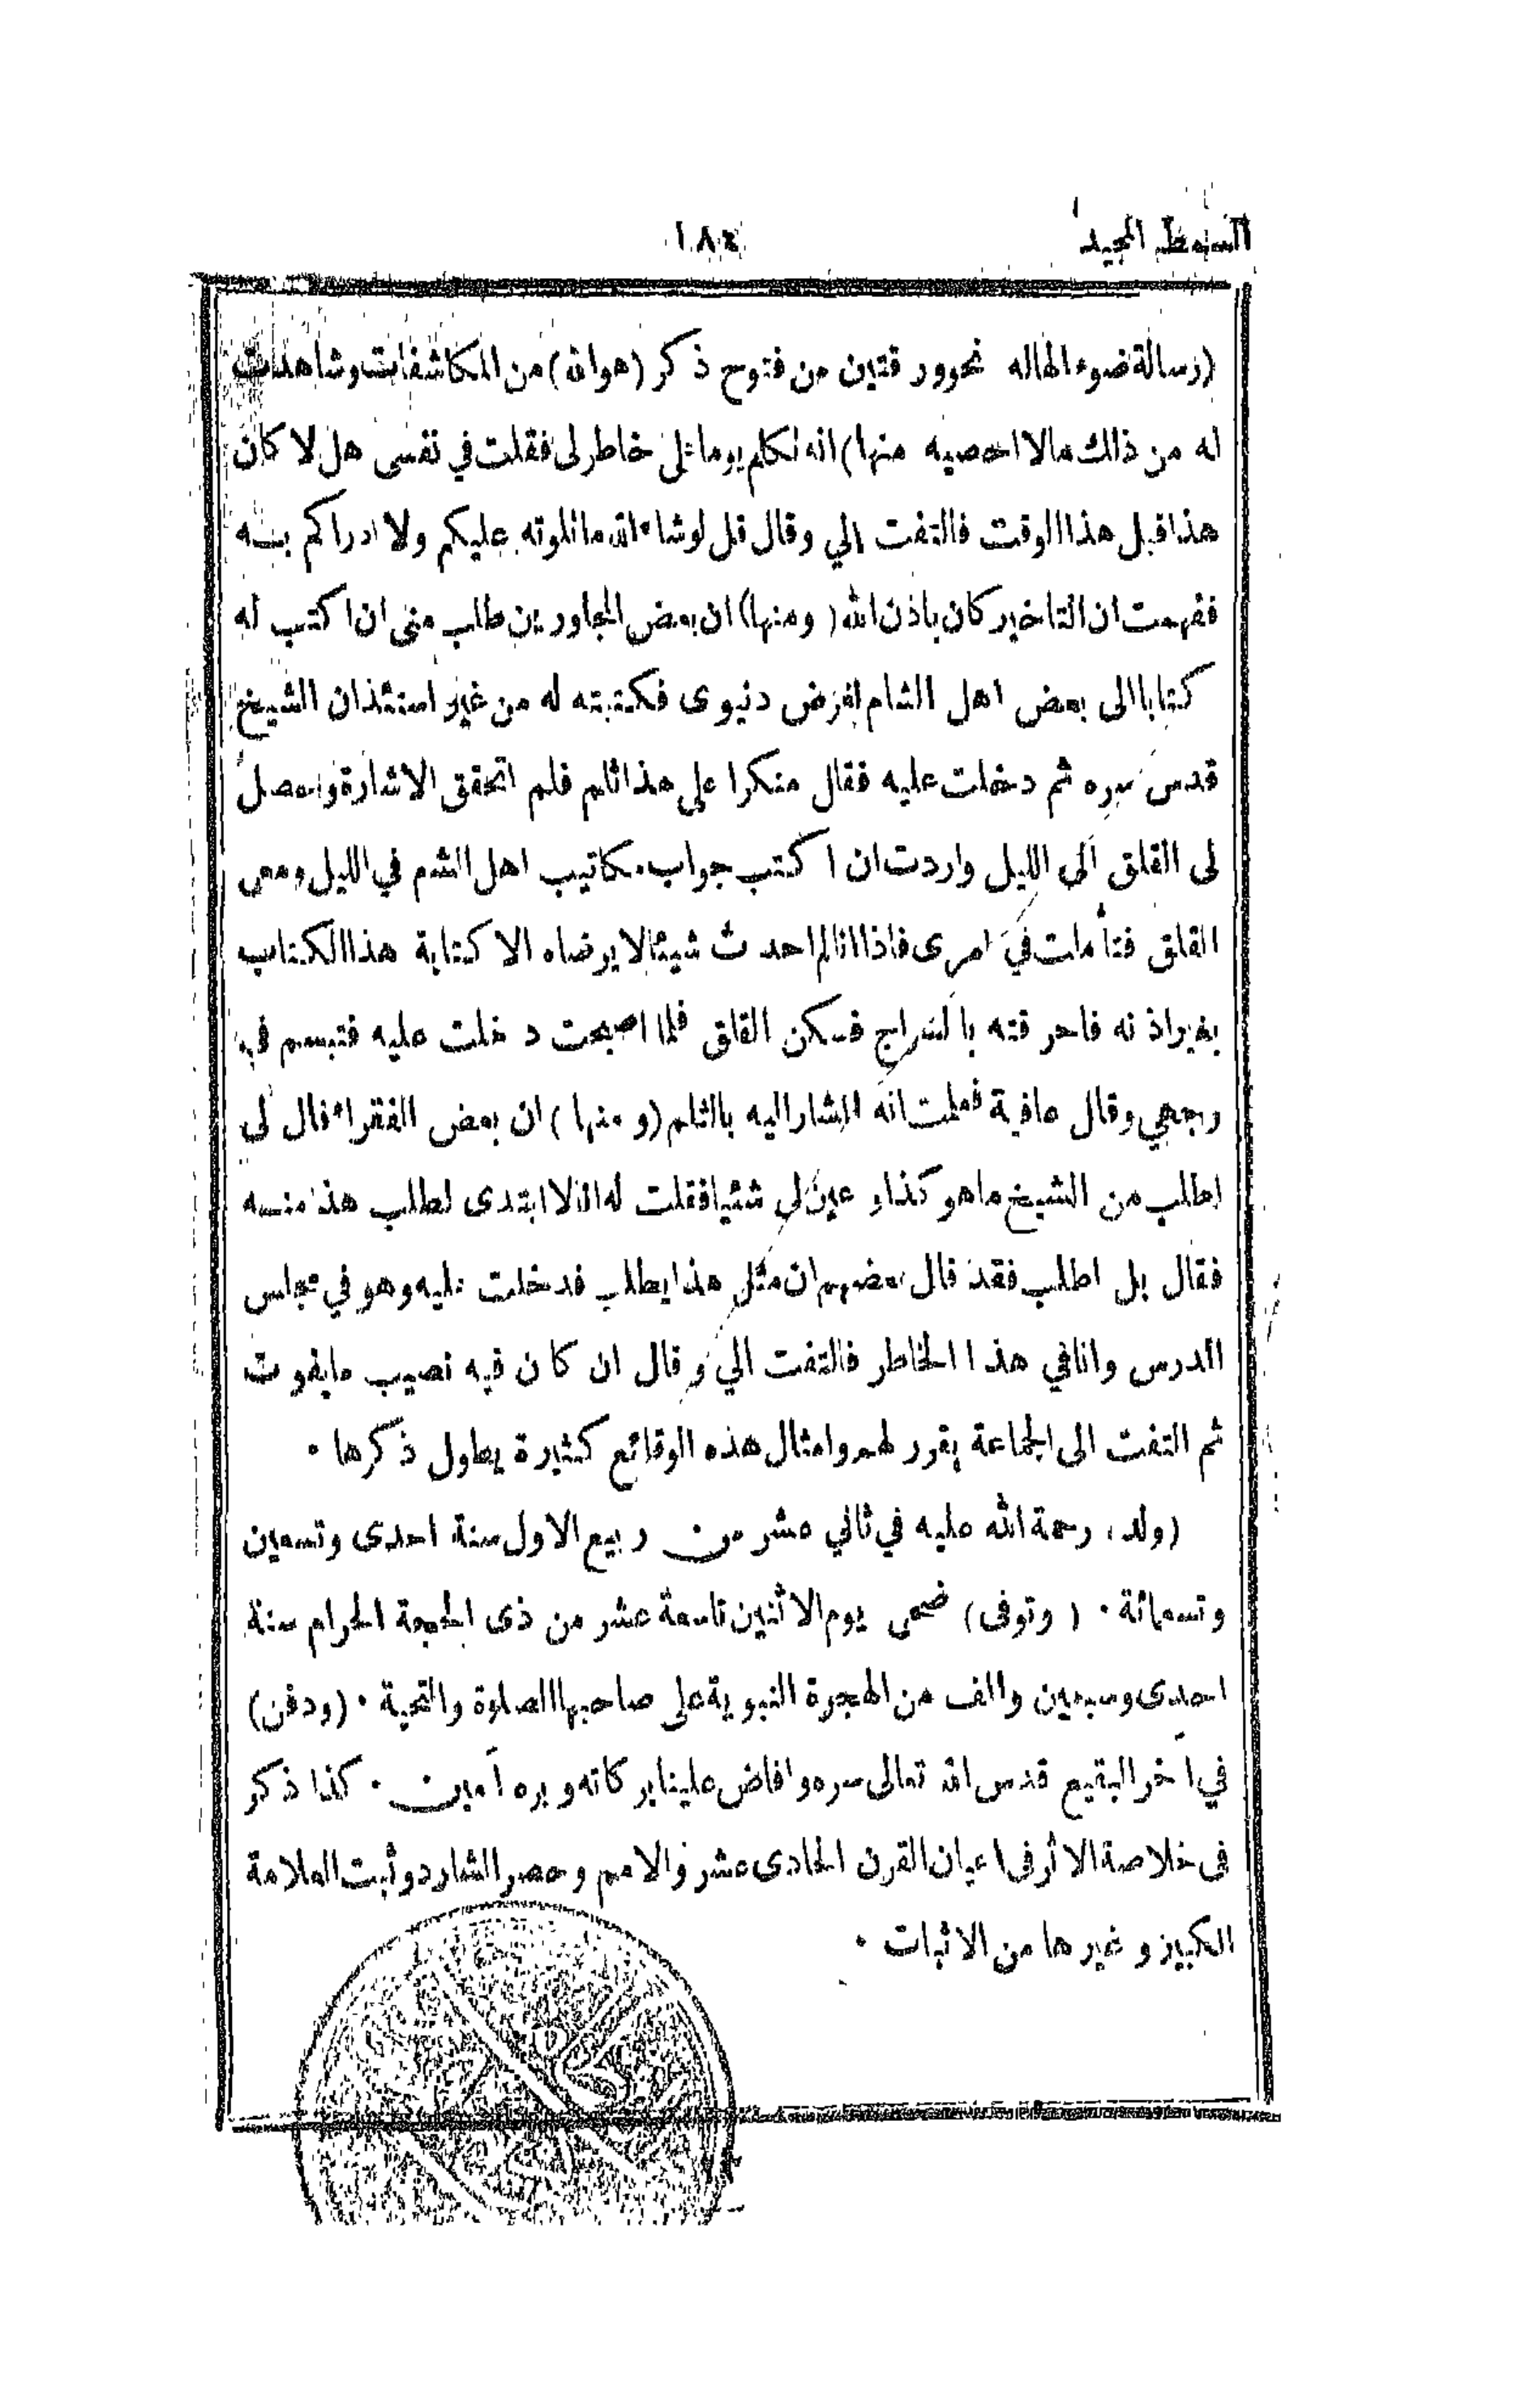 السمط المجيد ١٨٤
(رسالة ضوء الهاله نحو ورقتين من فتوح ذكر (هو الله) من المكاشفات وشاهدت
له من ذلك مالا احصيه منها) انه تكلم يوما على خاطر لى فقلت في نفسى هل لا كان
هذا قبل هذا الوقت فالتفت الي وقال قل لوشاء الله ما تلوته عليكم ولا ادراكم به
ففهمت ان التاخير كان باذن الله (ومنها) ان بعض المجاورين طلب منى ان اكتب له
كتابا الى بعض اهل الشام لغرض دنيوى فكتبته له من غير استئذان الشيخ
قدس سره ثم دخلت عليه فقال منكرا على هذا ثلم فلم اتحقق الاشارة وحصل
لى القلق الى الليل واردت ان اكتب جواب مكاتيب اهل الشام في الليل ومعى
القلق فتأملت في امرى فاذا انا لم احدث شيئا لا يرضاه الا كتابة هذا الكتاب
بغير اذنه فاحرقته بالسراج فسكن القلق فلما اصبحت دخلت عليه فتبسم في
وجهي وقال عافية فعلمت انه المشار اليه بالثلم (ومنها) ان بعض الفقراء قال لى
اطلب من الشيخ ما هو كذا وعين لى شئيا فقلت له انا لا ابتدى لطلب هذا منه
فقال بل اطلب فقد قال بعضهم ان مثل هذا يطلب فدخلت عليه وهو في مجلس
الدرس وانا في هذا الخاطر فالتفت الي وقال ان كان فيه نصيب ما يفوت
ثم التفت الى الجماعة يقرر لهم وامثال هذه الوقائع كثيرة يطول ذكرها ٠
(ولد) رحمة الله عليه في ثاني عشر من ربيع الاول سنة احدى وتسعين
وتسعمائة ٠ (وتوفى) ضحى يوم الاثنين تاسعة عشر من ذى الحجة الحرام سنة
احدى وسبعين والف من الهجرة النبوية على صاحبها الصلوة والتحية ٠ (ودفن)
في آخر البقيع قدس الله تعالى سره وافاض علينا بركاته وبره آمين ٠ كذا ذكر
فى خلاصة الاثر فى اعيان القرن الحادى عشر والامم وحصر الشارد وثبت العلامة
الكبير وغيرها من الاثبات ٠